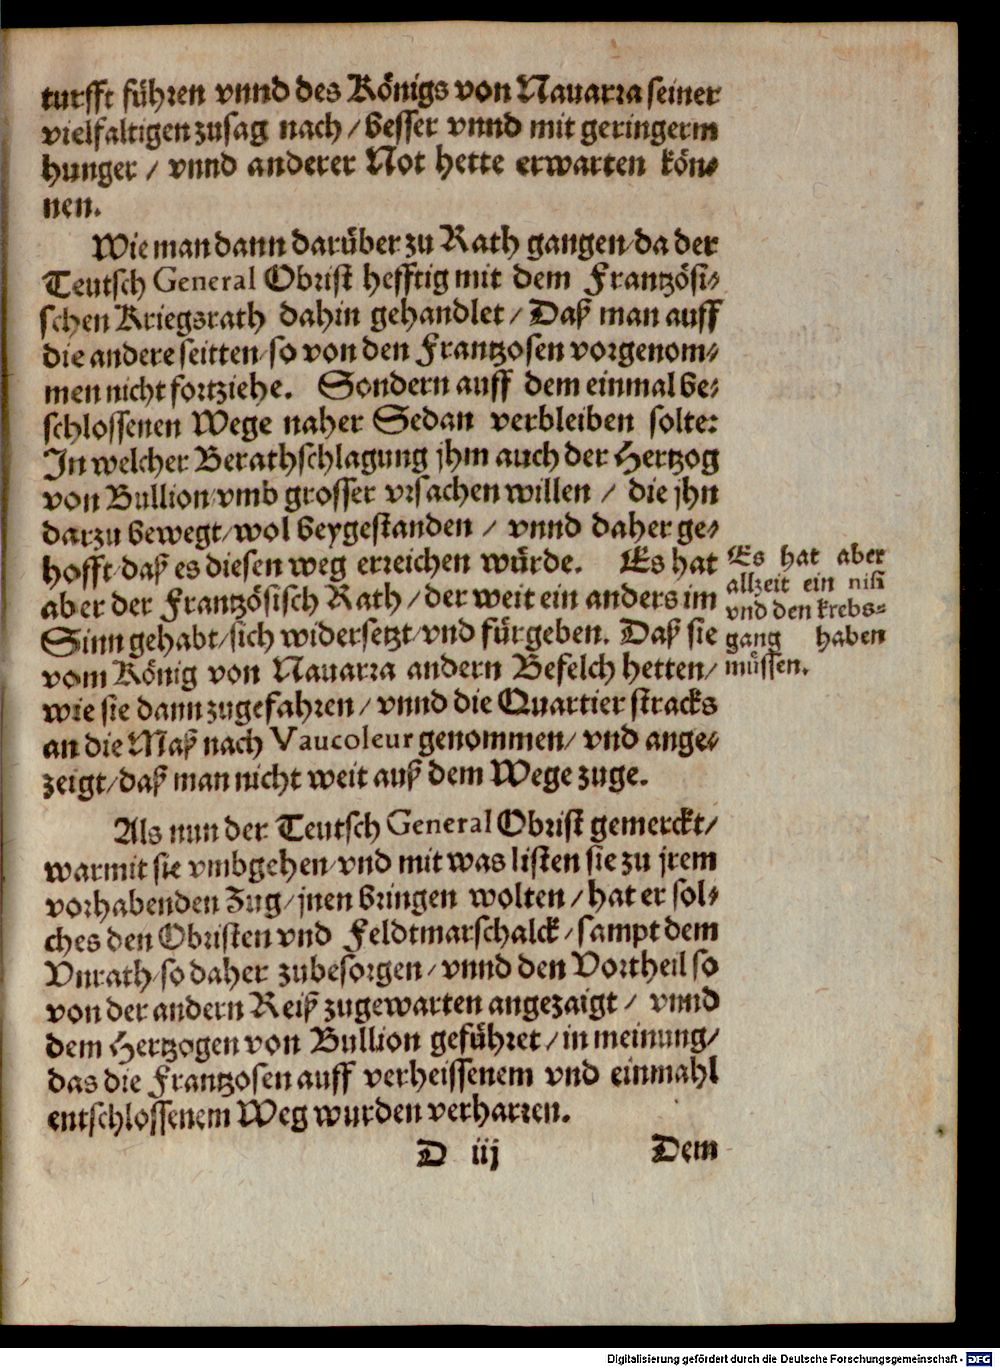 turfft führen vnnd des Königs von Nauarra seiner
vielfaltigen zusag nach / besser vnnd mit geringerm
hunger / vnnd anderer Not hette erwarten kön-
nen.
Wie man dann darüber zu Rath gangen/ da der
Teutsch General Obrist hefftig mit dem Frantzösi-
schen Kriegsrath dahin gehandlet / Daß man auff
die andere seitten/ so von den Frantzosen vorgenom-
men nicht fortziehe. Sondern auff dem einmal be-
schlossenen Wege naher Sedan verbleiben solte:
In welcher Berathschlagung jhm auch der Hertzog
von Bullion/ vmb grosser vrsachen willen / die jhn
darzu bewegt/ wol beygestanden / vnnd daher ge-
hofft/ daß es diesen weg erreichen würde. Es hat
aber der Frantzösisch Rath / der weit ein anders im
Sinn gehabt/ sich widersetzt/ vnd fürgeben. Daß sie
vom König von Nauarra andern Befelch hetten/
wie sie dann zugefahren / vnnd die Quartier stracks
an die Maß nach Vaucoleur genommen/ vnd ange-
zeigt/ daß man nicht weit auß dem Wege zuge.
Es hat aber
allzeit ein nisi
vnd den krebs-
gang haben
müssen.
Als nun der Teutsch General Obrist gemerckt/
warmit sie vmbgehen/ vnd mit was listen sie zu jrem
vorhabenden Zug / jnen bringen wolten / hat er sol-
ches den Obristen vnd Feldtmarschalck / sampt dem
Vnrath/ so daher zubesorgen / vnnd den Vortheil so
von der andern Reiß zugewarten angezaigt / vnnd
dem Hertzogen von Bullion geführet / in meinung/
das die Frantzosen auff verheissenem vnd einmahl
entschlossenem Weg wurden verharren.
D iij Dem
Digitalisierung gefördert durch die Deutsche Forschungsgemeinschaft - DFG